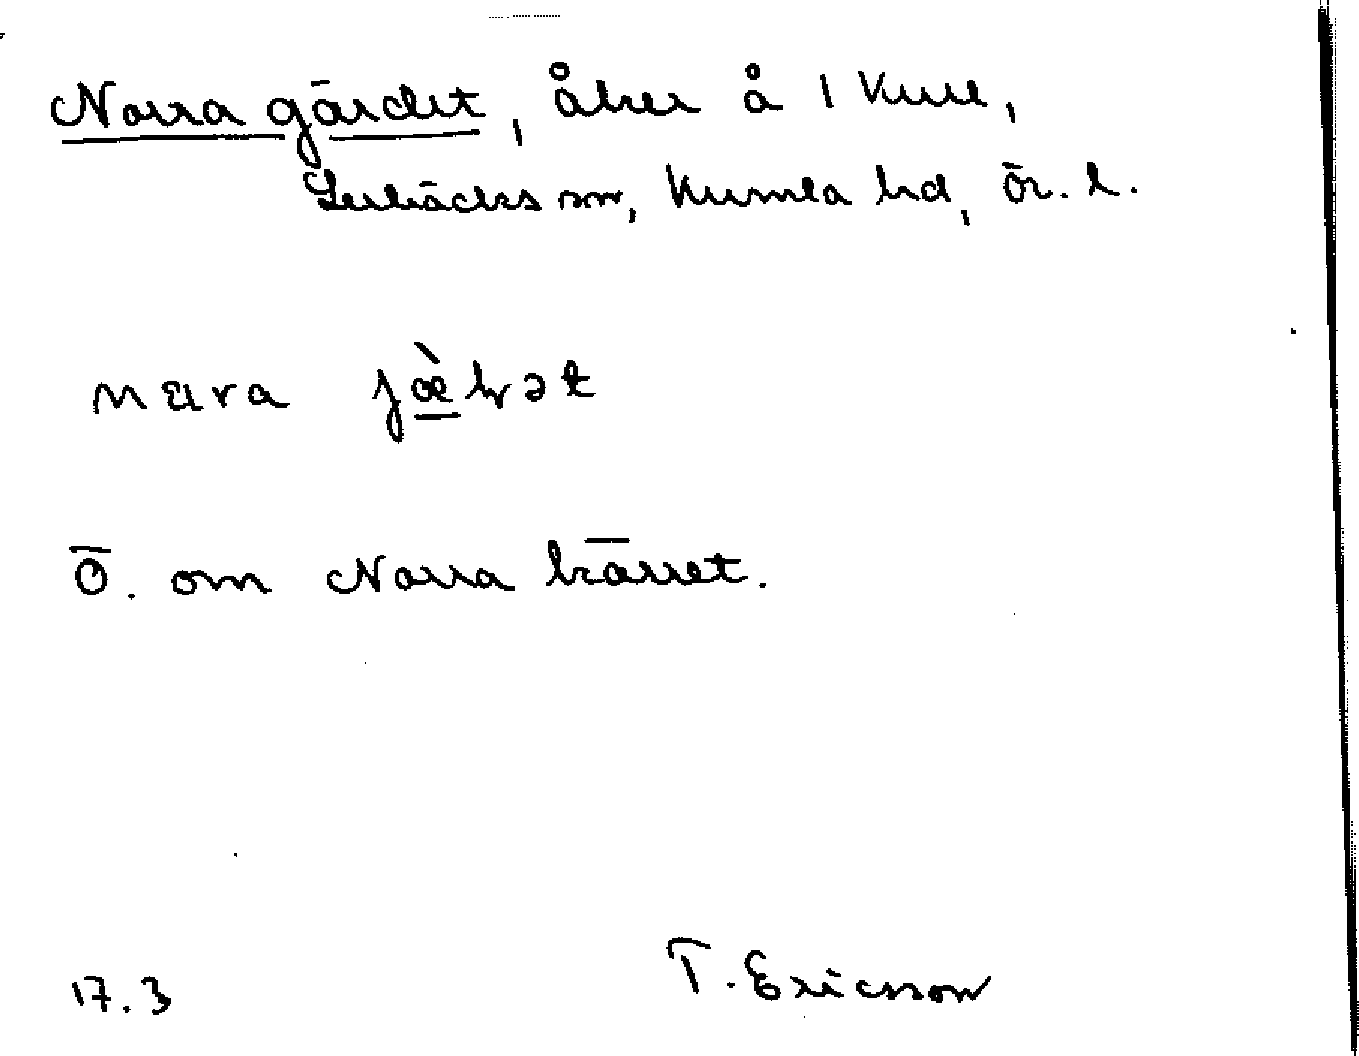 Norra gärdet, åker å 1 Kure,
Lerbäcks sn, Kumla hd, Ör. l.
jæ̀
Ö. om Norra kärret.
17.3 T. Ericsson